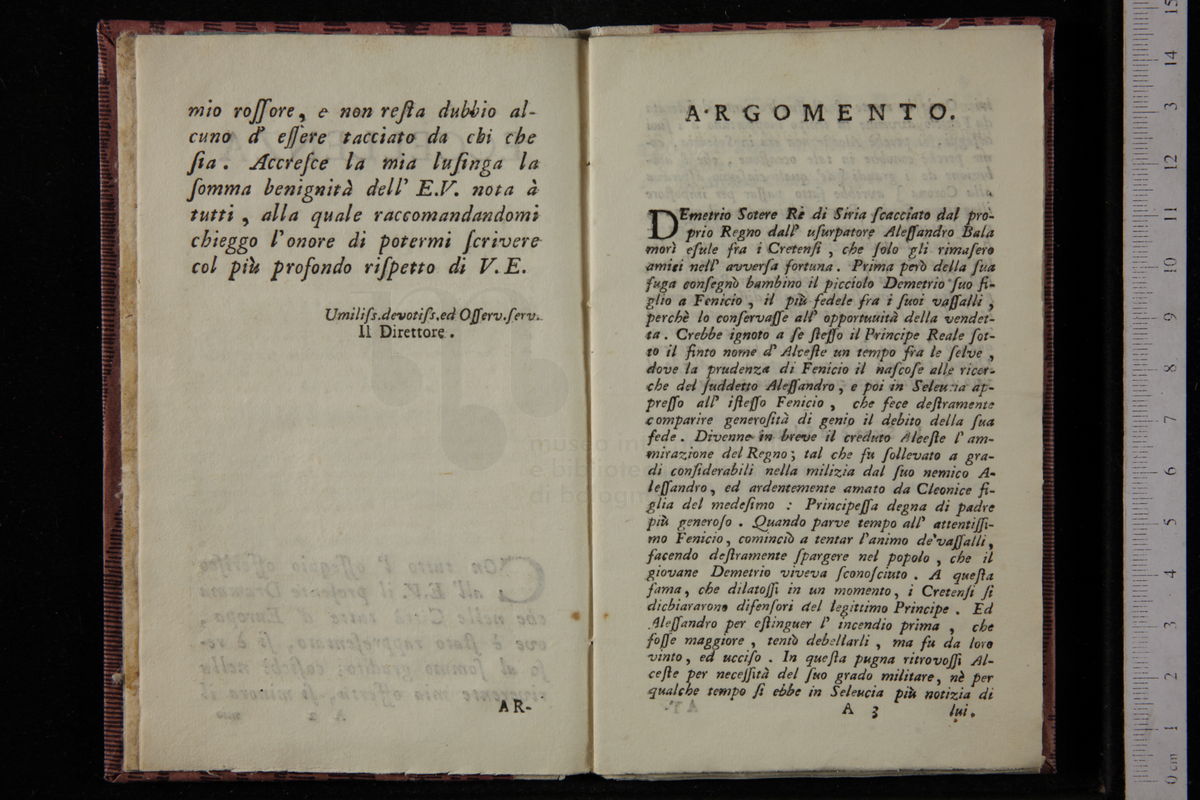 mio roſſore, e non reſta dubbio al-
cuno d' eſſere tacciato da chi che
ſia. Accreſce la mia luſinga la
ſomma benignità dell' E.V. nota à
tutti, alla quale raccomandandomi
chieggo l'onore di potermi ſcrivere
col più profondo riſpetto di V. E.
Umiliſs.devotiſs.ed Oſſerv.ſerv.
Il Direttore.
AR-
ARGOMENTO.
DEmetrio Sotere Rè di Siria ſcacciato dal pro-
prio Regno dall' uſurpatore Aleſſandro Bala
morì eſule fra i Cretenſi, che ſolo gli rimaſero
amici nell' avverſa fortuna. Prima però della ſua
fuga conſegnò bambino il picciolo Demetrio ſuo fi-
glio a Fenicio, il più fedele fra i ſuoi vaſſalli,
perchè lo conſervaſſe all' opportuuità della vendet-
ta. Crebbe ignoto a ſe ſteſſo il Principe Reale ſot-
to il finto nome d' Alceſte un tempo fra le ſelve,
dove la prudenza di Fenicio il naſcoſe alle ricer-
che del ſuddetto Aleſſandro, e poi in Seleucia ap-
preſſo all' iſteſſo Fenicio, che fece deſtramente
comparire generoſità di genio il debito della ſua
fede. Divenne in breve il creduto Alceſte l' am-
mirazione del Regno; tal che fu ſollevato a gra-
di conſiderabili nella milizia dal ſuo nemico A-
leſſandro, ed ardentemente amato da Cleonice fi-
glia del medeſimo: Principeſſa degna di padre
più generoſo. Quando parve tempo all' attentiſſi-
mo Fenicio, cominciò a tentar l'animo de'vaſſalli,
facendo deſtramente ſpargere nel popolo, che il
giovane Demetrio viveva ſconoſciuto. A queſta
fama, che dilatoſſi in un momento, i Cretenſi ſi
dichiararono difenſori del legittimo Principe. Ed
Aleſſandro per eſtinguer l' incendio prima, che
foſſe maggiore, tentò debellarli, ma fu da loro
vinto, ed ucciſo. In queſta pugna ritrovoſſi Al-
ceſte per neceſſità del ſuo grado militare, nè per
qualche tempo ſi ebbe in Seleucia più notizia di
A 3 lui.